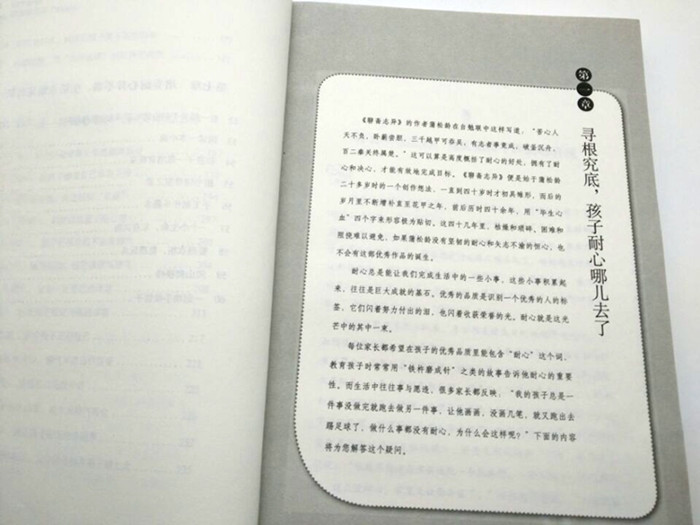 第一章
寻根究底，孩子耐心哪儿去了
《聊斋志异》的作者蒲松龄在自勉联中这样写道，“苦心人
天不负，卧薪尝胆，三千越甲可吞吴，有志者事竟成，破釜沉舟，
百二秦关终属楚。”这可以算是高度概括了耐心的好处，拥有了耐
心和决心，才能有效地完成目标。《聊斋志异》便是始于蒲松龄
二十多岁时的一个创作想法，一直到四十岁时才初具雏形，而后的
岁月里不断增补直至花甲之年，前后历时四十余年，用“毕生心
血”四个字来形容极为贴切。这四十几年里，枯燥和琐碎、困难和
阻挠难以避免，如果蒲松龄没有坚韧的耐心和矢志不渝的恒心，也
不会有这部优秀作品的诞生。
耐心总是能让我们完成生活中的一些小事，这些小事积累起
来，往往是巨大成就的基石。优秀的品质是识别一个优秀的人的标
签，它们闪着努力付出的泪，也闪着收获荣誉的光。耐心就是这光
芒中的其中一束。
每位家长都希望在孩子的优秀品质里能包含“耐心”这个词，
教育孩子时常常用“铁杵磨成针”之类的故事告诉他耐心的重要
性。而生活中往往事与愿违，很多家长都反映，“我的孩子总是一
件事没做完就跑去做另一件事，让他画画，没画几笔，就又跑出去
踢足球了，做什么事都没有耐心，为什么会这样呢？”下面的内容
将为您解答这个疑问。